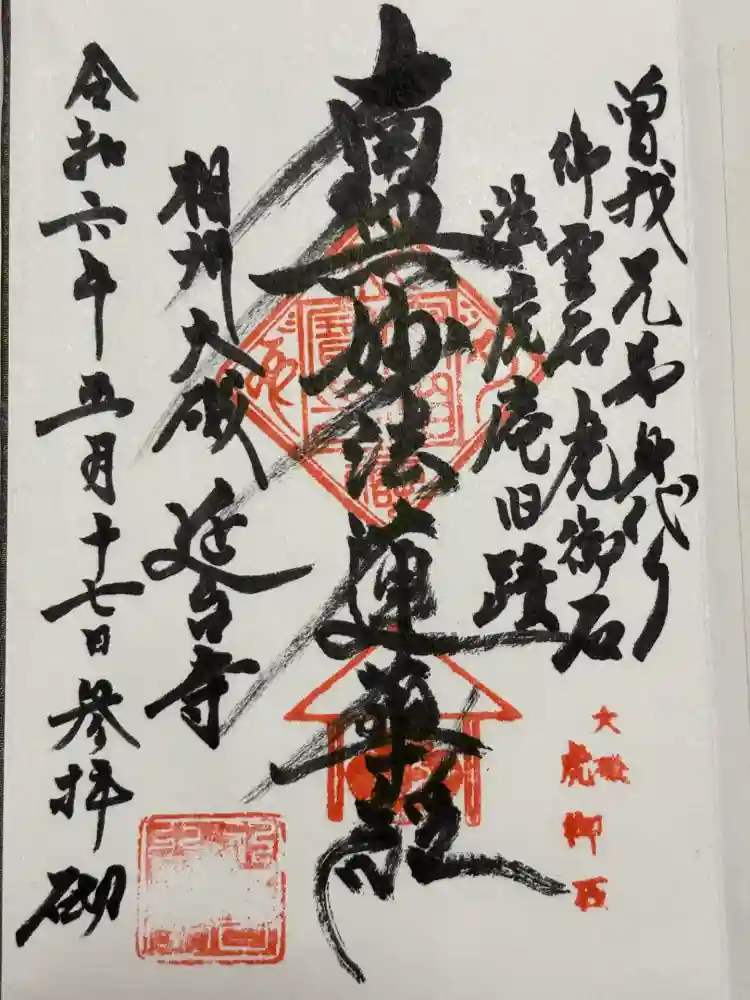 曽我兄弟身代り
御霊石 虎御石
法虎庵旧蹟
南無妙法蓮華経
相州 大磯 延台寺
令和六年 五月十七日 参拝 砌
大磯
虎御石